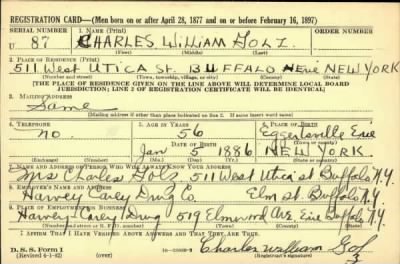 REGISTRATION CARD—(Men born on or after April 28, 1877 and on or before February 16, 1897)
SERIAL NUMBER
1. NAME (Print)
ORDER NUMBER
U 87 CHARLES WILLIAM GOLZ
(First) (Middle) (Last)
2. PLACE OF RESIDENCE (Print)
511 West UTICA St. BUFFALO Erie NEW YORK
(Number and street) (Town, township, village, or city) (County) (State)
[THE PLACE OF RESIDENCE GIVEN ON THE LINE ABOVE WILL DETERMINE LOCAL BOARD
JURISDICTION; LINE 2 OF REGISTRATION CERTIFICATE WILL BE IDENTICAL]
3. MAILING ADDRESS
Same
[Mailing address if other than place indicated on line 2. If same insert word same]
4. TELEPHONE
5. AGE IN YEARS
6. PLACE OF BIRTH
no.
56
Eggertsville Erie
DATE OF BIRTH
(Town or county)
Jan 5 1886
NEW YORK
(Exchange) (Number) (Mo.) (Day) (Yr.) (State or country)
7. NAME AND ADDRESS OF PERSON WHO WILL ALWAYS KNOW YOUR ADDRESS
Mrs Charles Golz 511 West Utica St Buffalo N.Y.
8. EMPLOYER'S NAME AND ADDRESS
Harvey Carey Drug Co. Elm St. Buffalo N.Y.
9. PLACE OF EMPLOYMENT OR BUSINESS
Harvey Carey Drug 519 Elmwood Ave. Erie Buffalo N.Y.
(Number and street or R. F. D. number) (Town) (County) (State)
I AFFIRM THAT I HAVE VERIFIED ABOVE ANSWERS AND THAT THEY ARE TRUE.
D. S. S. Form 1
(Revised 4-1-42) (over)
Charles William Golz
(Registrant's signature)